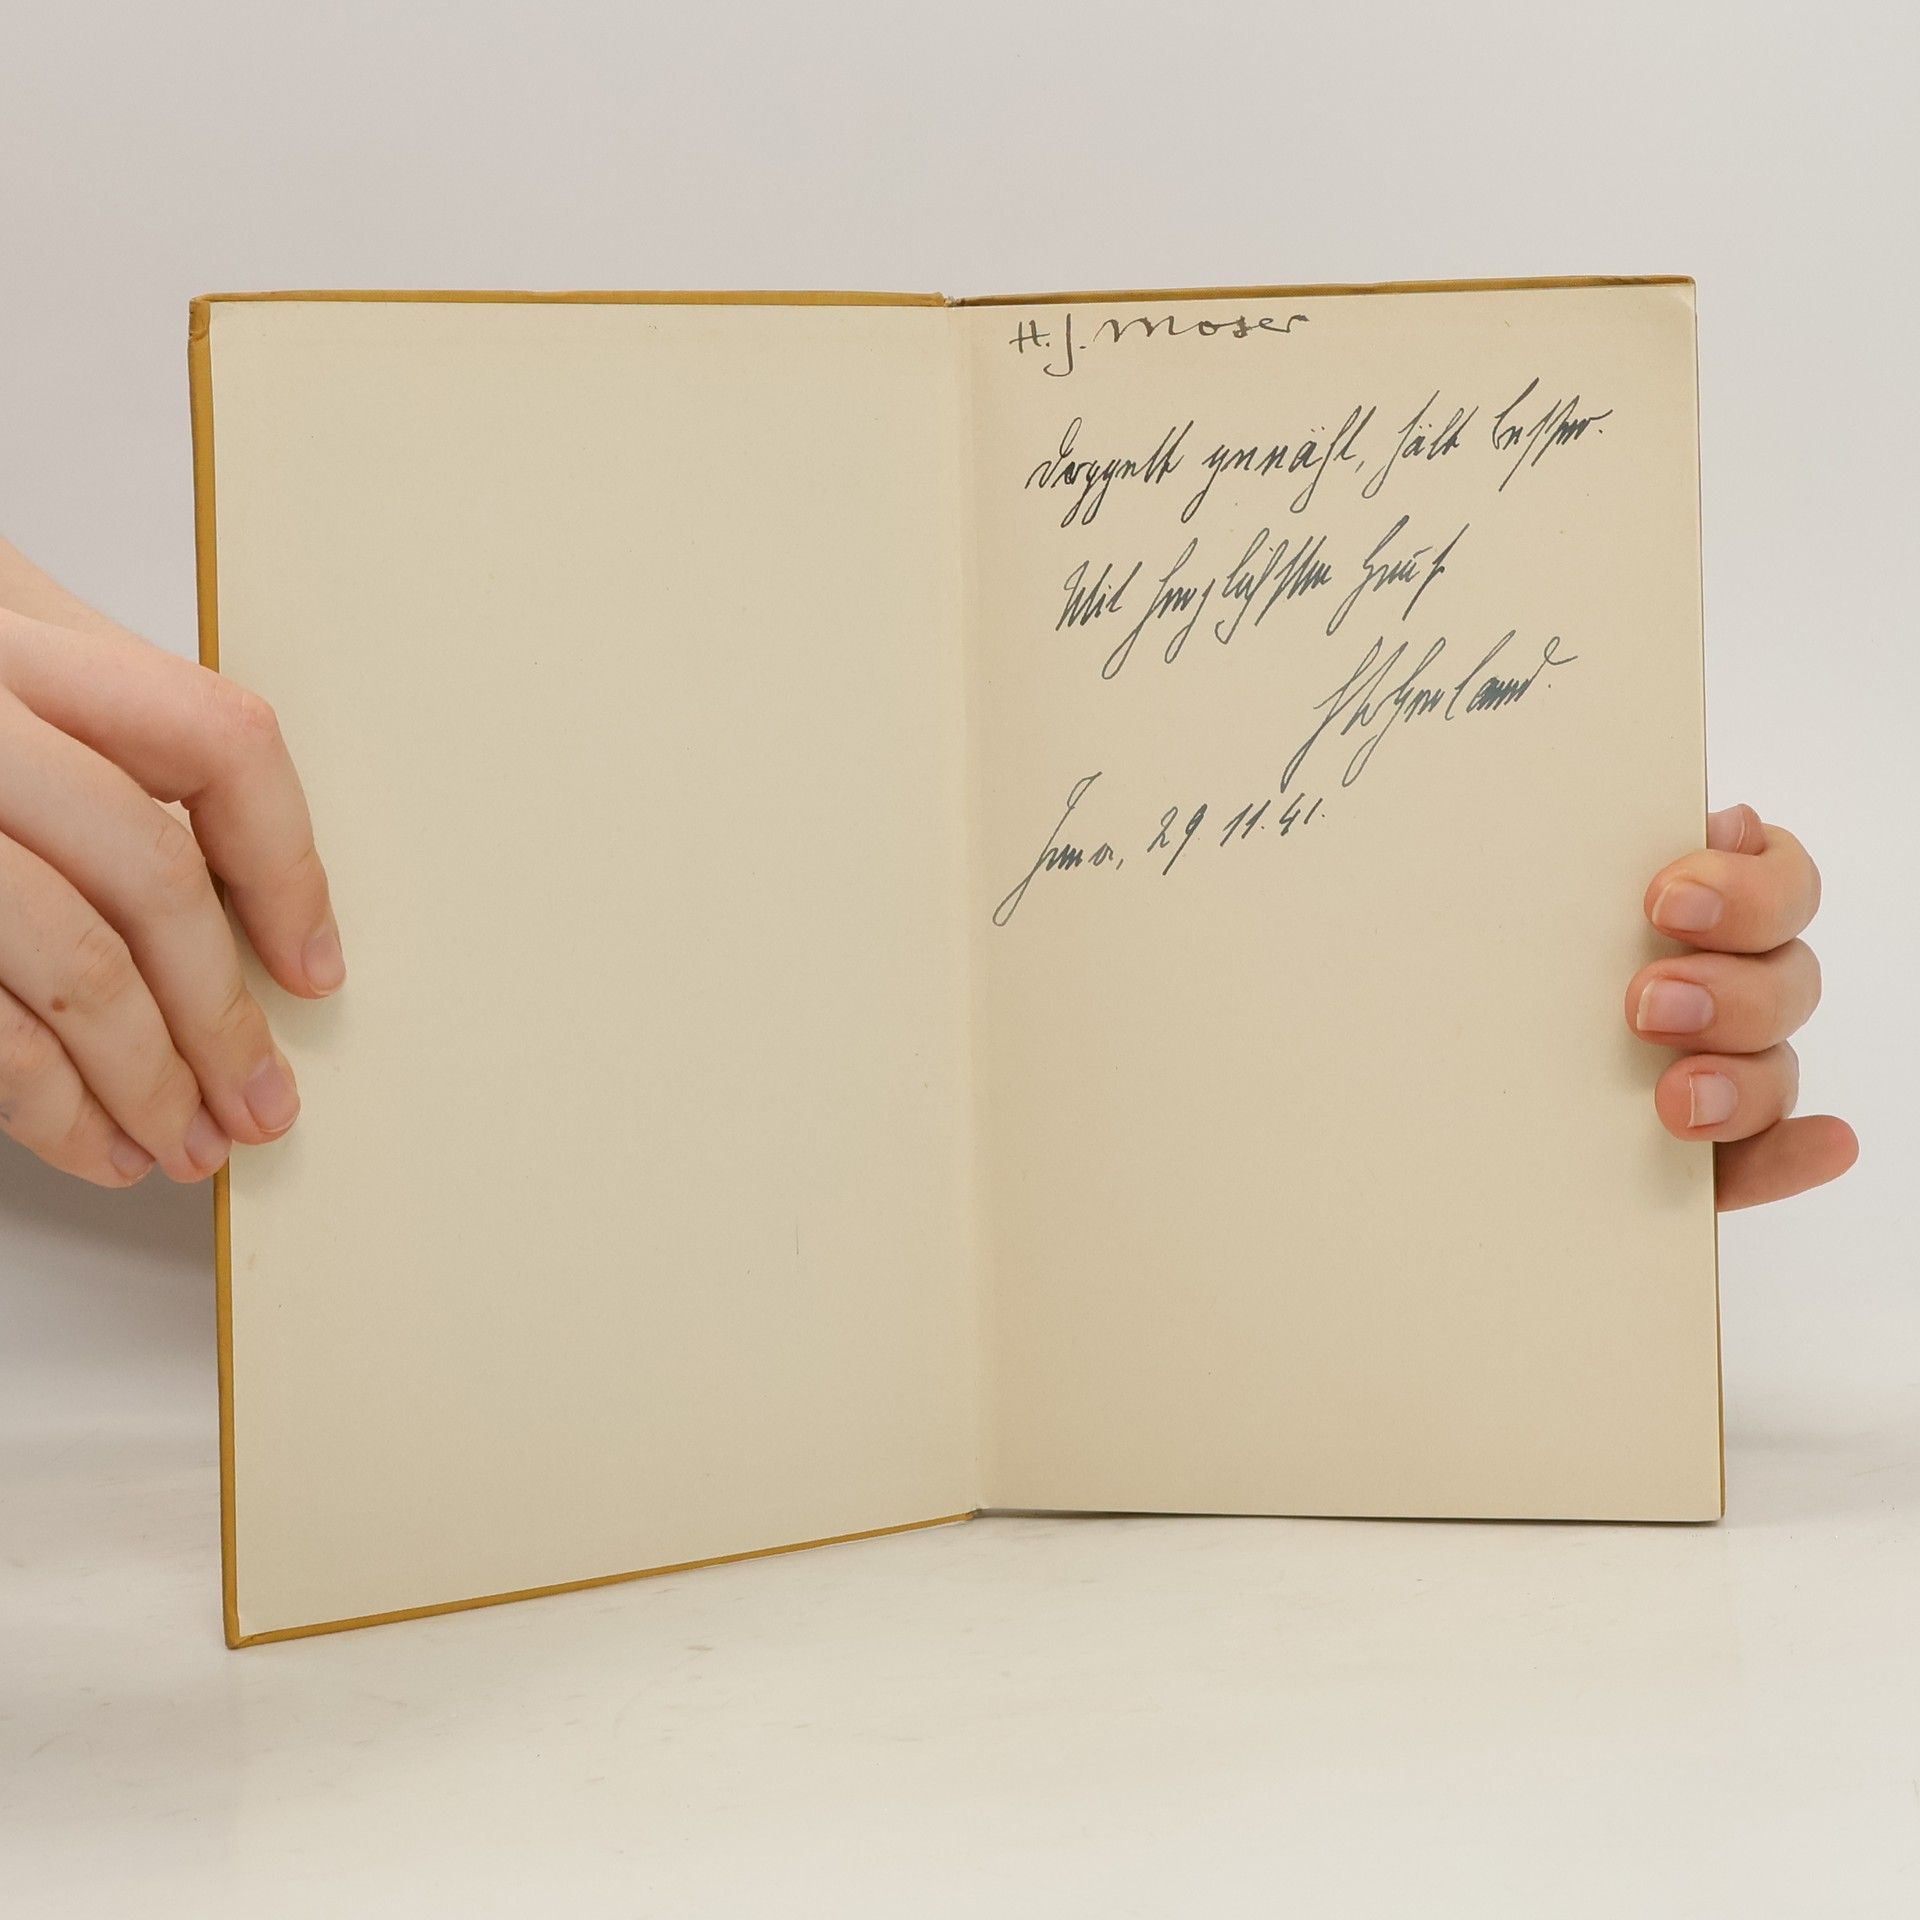 H. J. Moser
Doppelt genäht, hält besser.
Mit herzlichstem Gruß
Jena, 29. 11. 41.